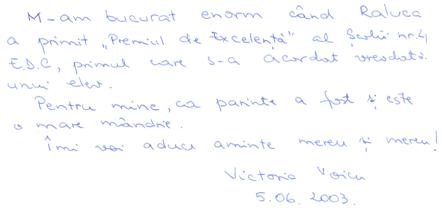 M-am bucurat enorm când Raluca
a primit „Premiul de Excelență" al Școlii nr. 4,
E.D.C, primul care s-a acordat vreodată
unui elev.
Pentru mine, ca parinte a fost și este
o mare mândrie.
Îmi voi aduce aminte mereu și mereu!
Victoria Voicu
5.06.2003.